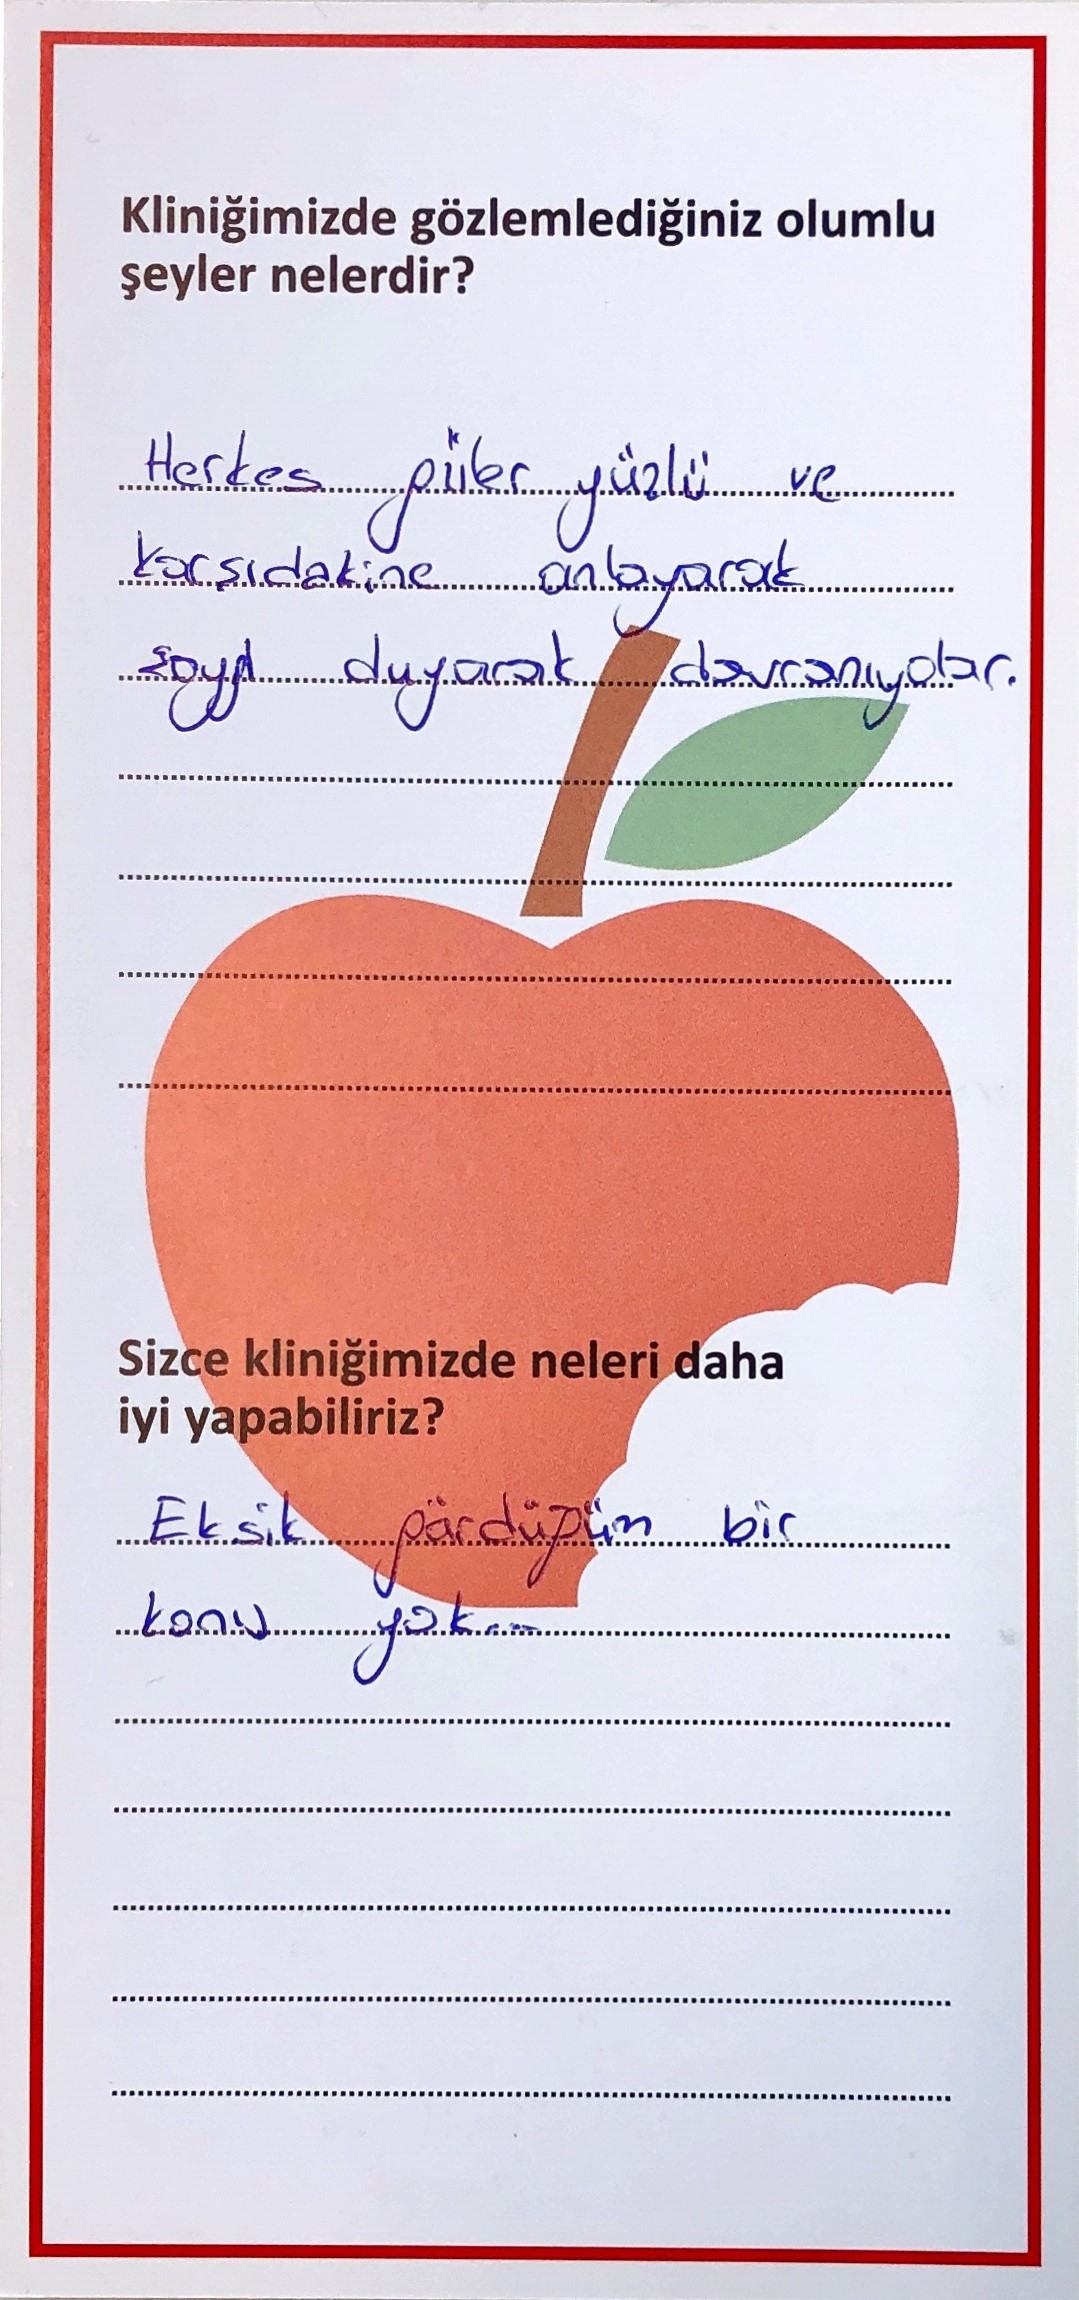 Kliniğimizde gözlemlediğiniz olumlu
şeyler nelerdir?
Herkes güler yüzlü ve
karşıdakine anlayarak
saygı duyarak davranıyolar.
Sizce kliniğimizde neleri daha
iyi yapabiliriz?
Eksik gördüğün bir
konu yok...